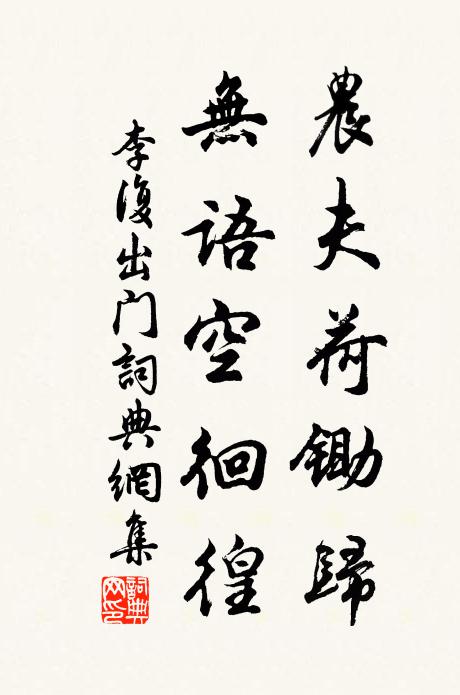 農夫荷鋤歸
無語空徊徨
李復出門詞典網集
詞典網印